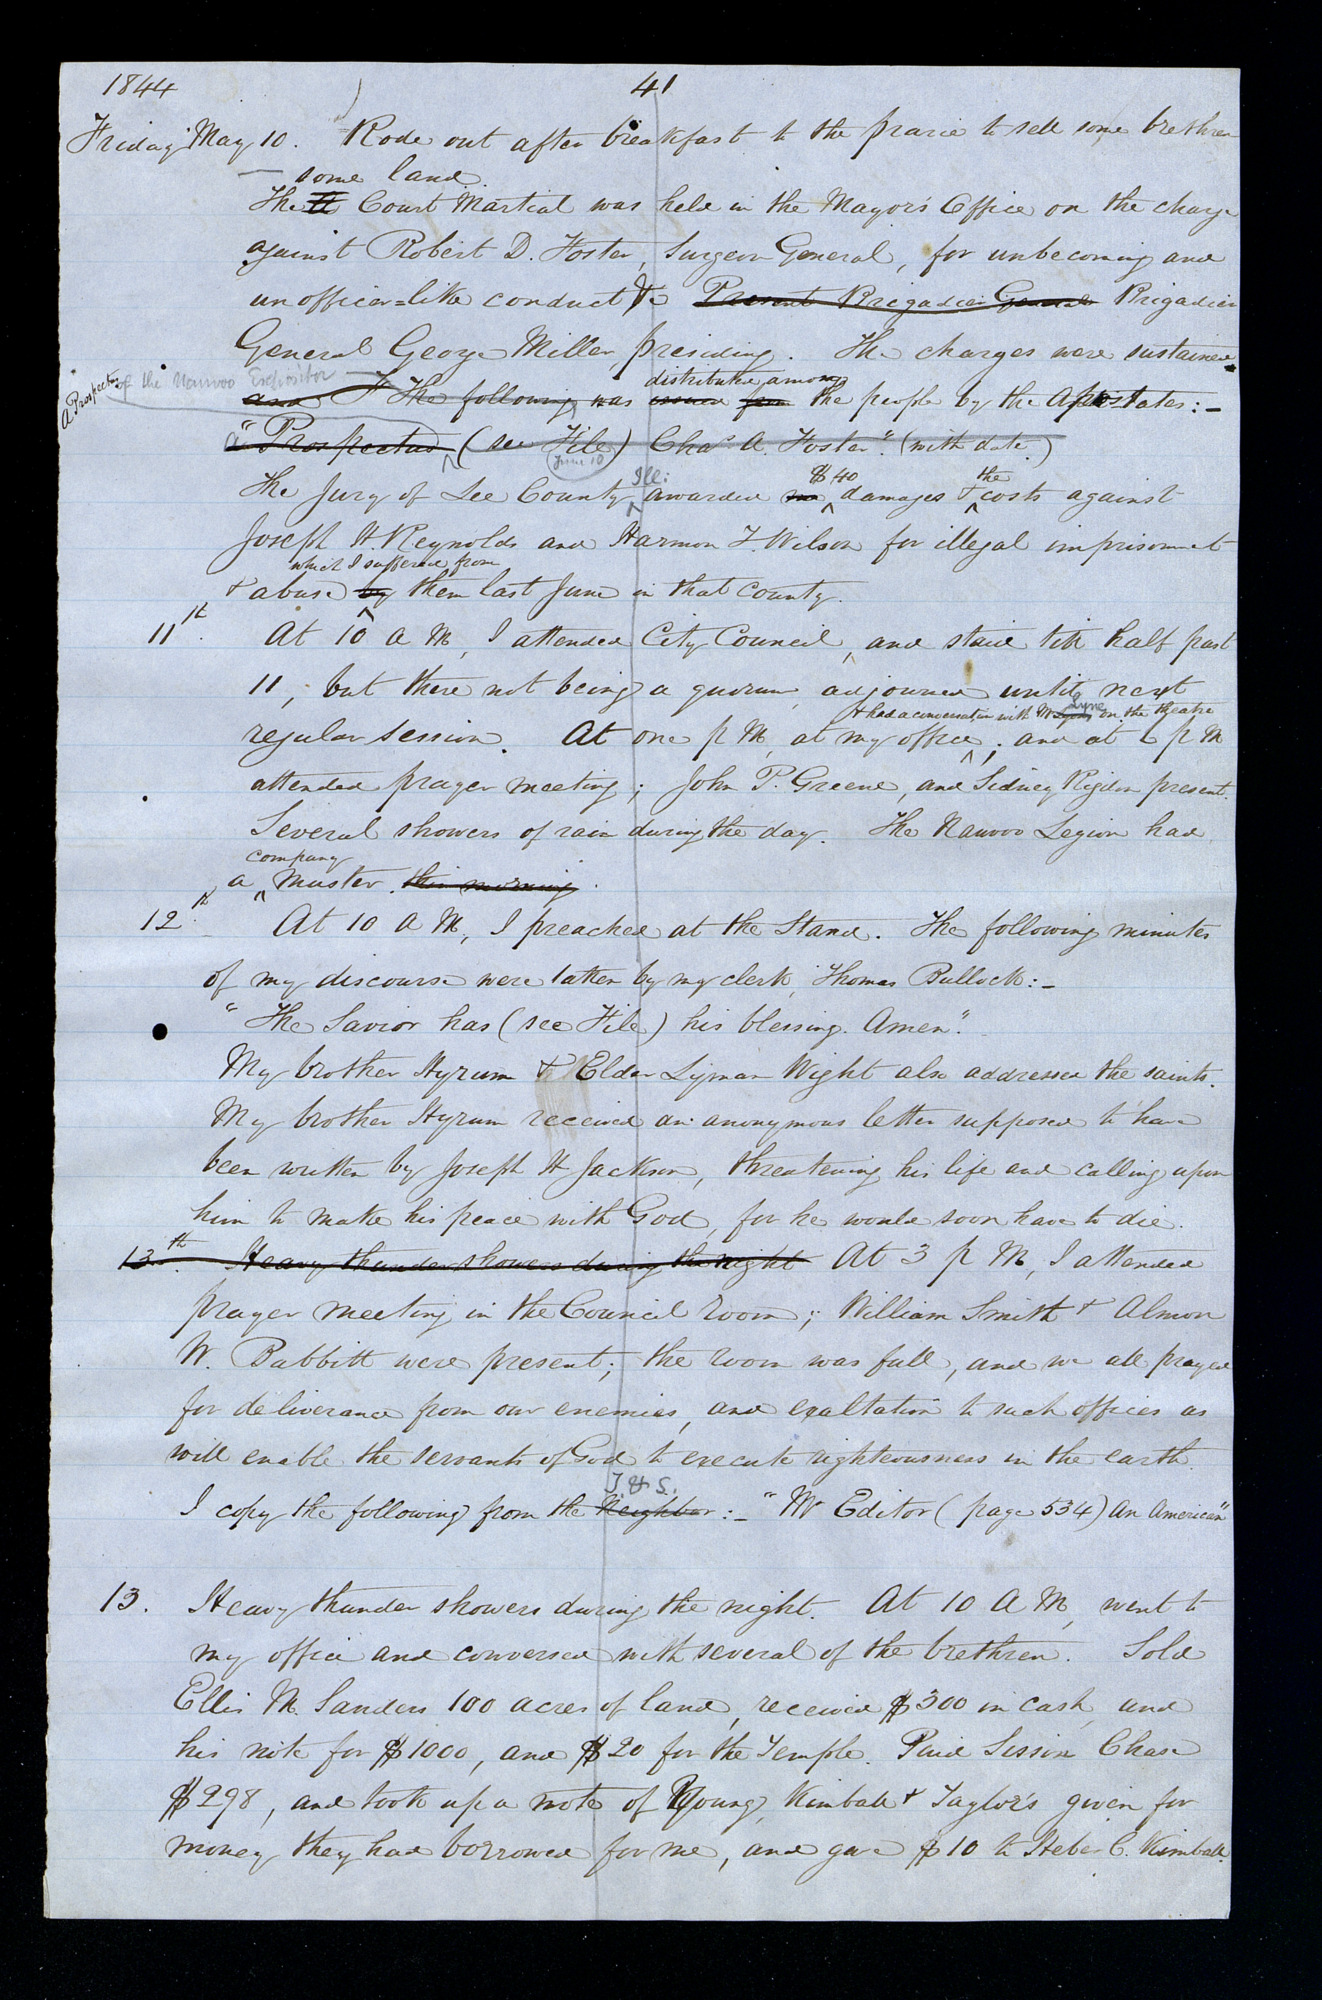 1844
41
Friday May 10. Rode out after breakfast to the prarie to sell some brethren
some land
The Court Martial was held in the Mayor's Office on the charge
against Robert D. Foster, Surgeon General, for unbecoming and
unofficer=like conduct &c Present Brigadier General Brigadier
General George Miller, presiding. The charges were sustained.
A Prospectus of the Nauvoo Expositor
distributed among
and The following was issued from the people by the Apostates:-
"Prospectus (see File) Chas. A. Foster". (with date)
June 10
Ill: $40 the
The Jury of Lee County awarded damages & costs against
Joseph H. Reynolds and Harmon T. Wilson for illegal imprisonment
which I suffered from
& abuse by them last June in that county.
11th. At 10 A M, I attended City Council, and staid till half past
11, but there not being a quorum, adjourned until next
& had a conversation with Mr Lyons Lyne on the theatre
regular session. At one p M, at my office; and at 6 p M
attended prayer meeting; John P. Greene, and Sidney Rigdon present.
Several showers of rain during the day. The Nauvoo Legion had
company
a muster this morning.
12th. At 10 A M, I preached at the Stand. The following minutes
of my discourse were taken by my clerk, Thomas Bullock:-
"The Savior has (see File) his blessing. Amen."
My brother Hyrum & Elder Lyman Wight also addressed the saints.
My brother Hyrum received an anonymous letter supposed to have
been written by Joseph H Jackson, threatening his life and calling upon
him to make his peace with God, for he would soon have to die.
13th. Heavy thunder showers during the night At 3 p M, I attended
prayer meeting in the Council room; William Smith & Almon
W. Babbitt were present; the room was full, and we all prayed
for deliverance from our enemies, and exaltation to such offices as
will enable the servants of God to execute righteousness in the earth.
T. & S.
I copy the following from the Neighbor:- "Mr Editor (page 534) An American"
13. Heavy thunder showers during the night. At 10 A M, went to
my office and conversed with several of the brethren. Sold
Ellis M. Sanders 100 acres of land, received $300 in cash, and
his note for $1000, and $20 for the Temple. Paid Sisson Chase
$298, and took up a note of Young, Kimball & Taylor's given for
money they had borrowed for me, and gave $10 to Heber C. Kimball.